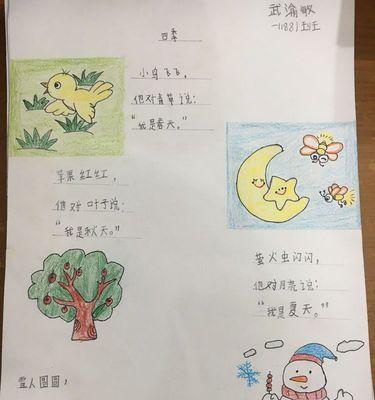 武渝敏
一(1881)班
四季
小鸟飞飞，
他对青草说：
“我是春天。”
苹果红红，
他对叶子说：
“我是秋天。”
萤火虫闪闪，
他对月亮说：
“我是夏天。”
雪人圆圆，